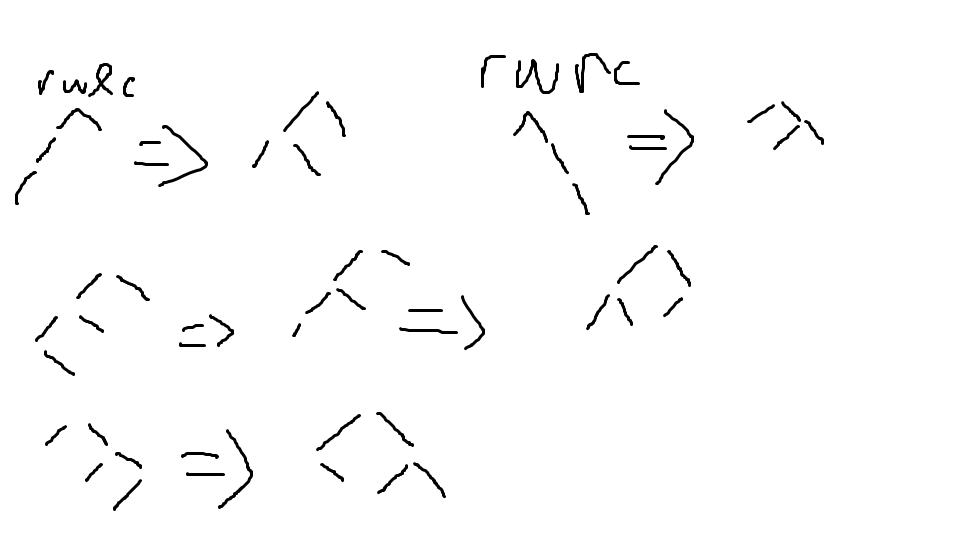 rwlc
rwrc